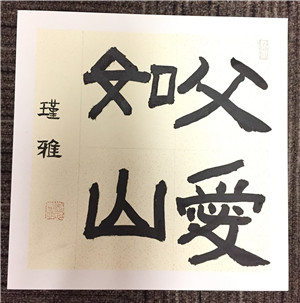 父愛
如山
瑾雅